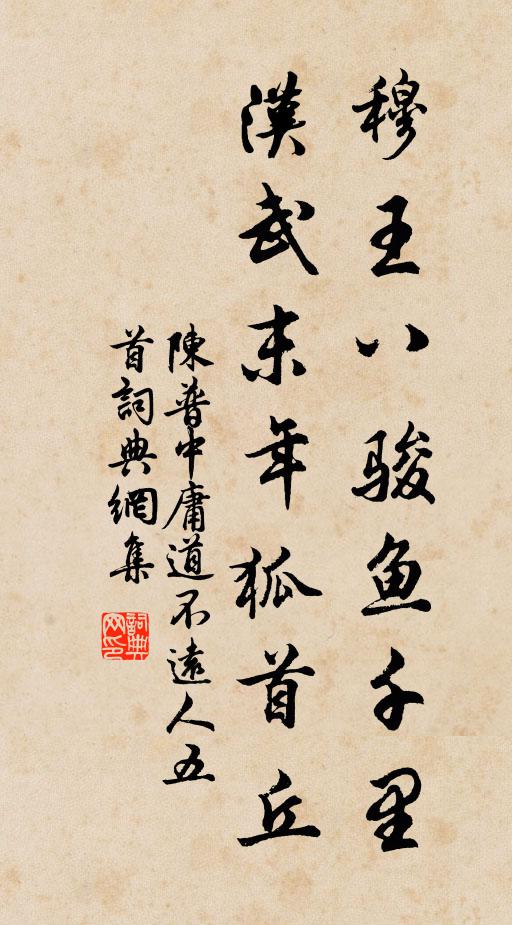 穆王八骏鱼千里
漢武末年狐首丘
陳普中庸道不遠人五
首詞典網集
詞典
网印